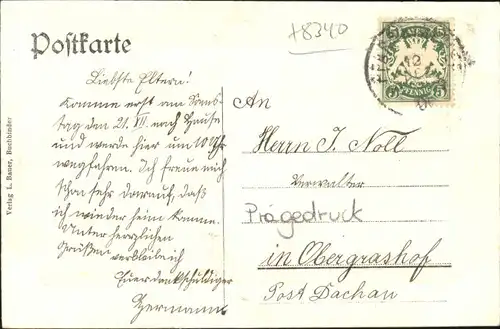 +8340
Postkarte
Liebste Eltern!
Komme erst am Sams-
tag den 21. VII. nach Hause
und werde hier um 10 Uhr
wegfahren. Ich freue mich
schon sehr darauf, daß
ich wieder heim komme.
Unter herzlichen
Grüßen verbleibt
Euer dankschuldiger
Hermann
An
Herrn J. Noll
Verwalter
Prägedruck
in Obergrashof
Post Dachau
5 5
PFENNIG
5 5
12
Verlag L. Bauer, Buchbinder